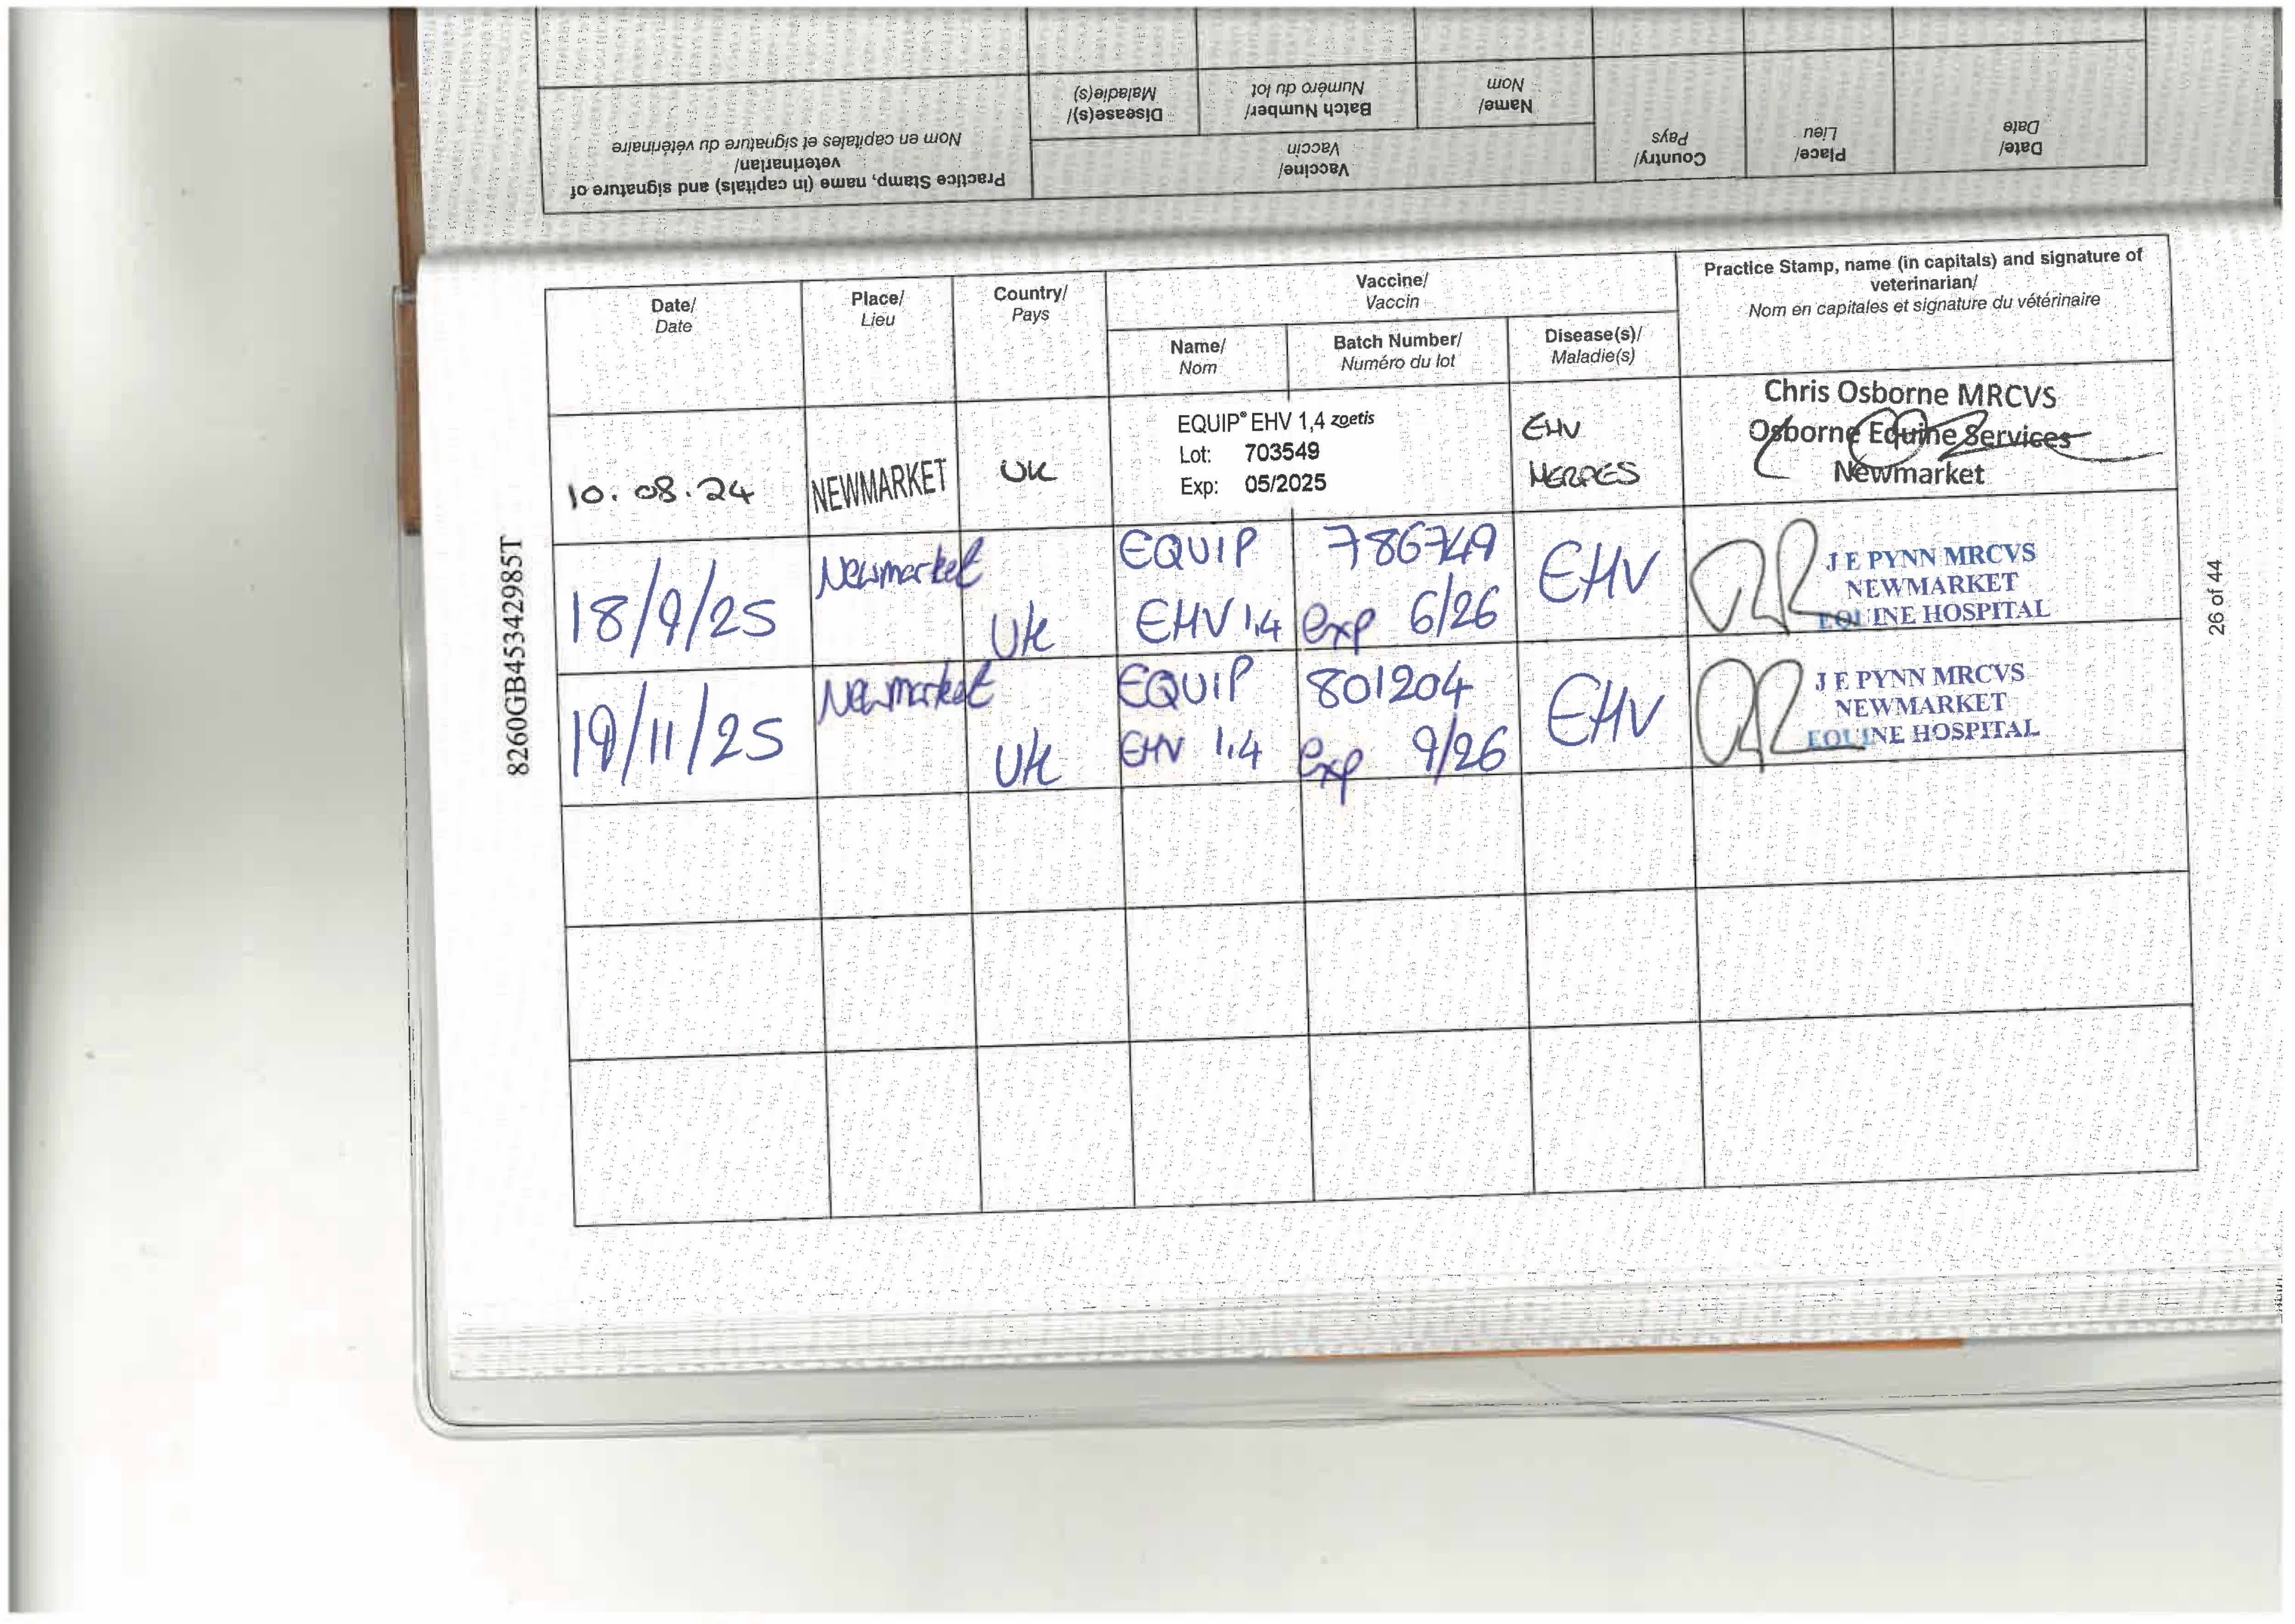 Practice Stamp, name (in capitals) and signature of
veterinarian/
Nom en capitales et signature du vétérinaire
Vaccine/
Vaccin
Disease(s)/
Maladie(s)
Batch Number/
Numéro du lot
Name/
Nom
Country/
Pays
Place/
Lieu
Date/
Date
Date/
Date
Place/
Lieu
Country/
Pays
Vaccine/
Vaccin
Name/
Nom
Batch Number/
Numéro du lot
Disease(s)/
Maladie(s)
Practice Stamp, name (in capitals) and signature of
veterinarian/
Nom en capitales et signature du vétérinaire
10.08.24
NEWMARKET
UK
EQUIP® EHV 1,4 zoetis
Lot: 703549
Exp: 05/2025
EHV
HERPES
Chris Osborne MRCVS
Osborne Equine Services
Newmarket
18/9/25
Newmarket
UK
EQUIP
EHV 1.4
786749
exp 6/26
EHV
J E PYNN MRCVS
NEWMARKET
EQUINE HOSPITAL
19/11/25
Newmarket
UK
EQUIP
EHV 1.4
801204
exp 9/26
EHV
J E PYNN MRCVS
NEWMARKET
EQUINE HOSPITAL
8260GB453429985T
26 of 44